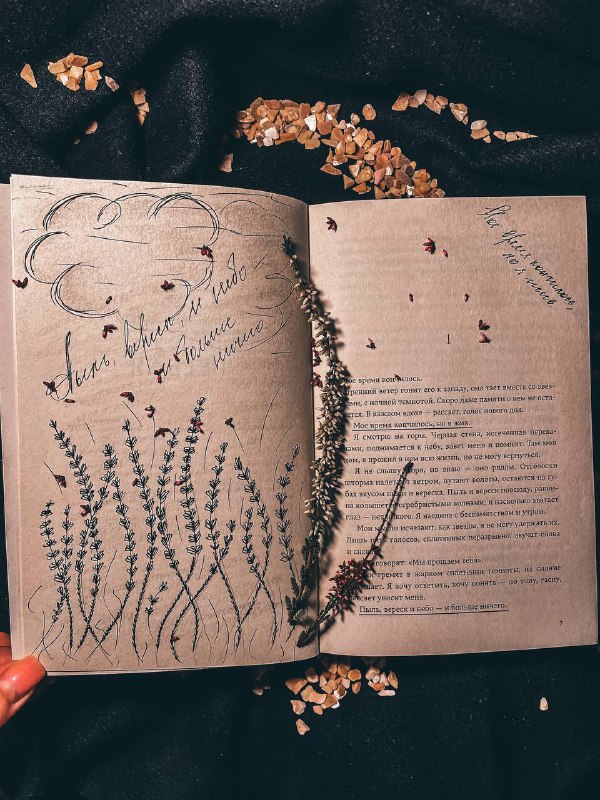 Пыль, вереск, и небо
и больше
ничего.
Мое время кончилось,
но я жив.
1
ое время кончилось.
тренний ветер гонит его к западу, оно тает вместе со звез-
ами, с ночной темнотой. Скоро даже памяти о нем не оста-
ется. В каждом вдохе — рассвет, голос нового дня.
Мое время кончилось, но я жив.
Я смотрю на горы. Черная стена, иссеченная перева-
лами, поднимается к небу, зовет меня и помнит. Там мой
дом, я прожил в нем всю жизнь, но не могу вернуться.
Я не слышу моря, но знаю — оно рядом. Отголоски
шторма налетают ветром, путают волосы, остаются на гу-
бах вкусом пыли и вереска. Пыль и вереск повсюду, равни-
на колышется серебристыми волнами, и насколько хватает
глаз — ни одного. Я наедине с беспамятством и утром.
Мои мысли исчезают, как звезды, я не могу удержать их.
Лишь голосов, сплетенных неразрывно, звучат снова
и снова
говорят: «Мы прощаем тебя».
гремят в жарком сплетении темноты, их сияние
Я хочу ответить, хочу понять — но тону, гасну,
свет уносит меня.
Пыль, вереск и небо — и больше ничего.
7